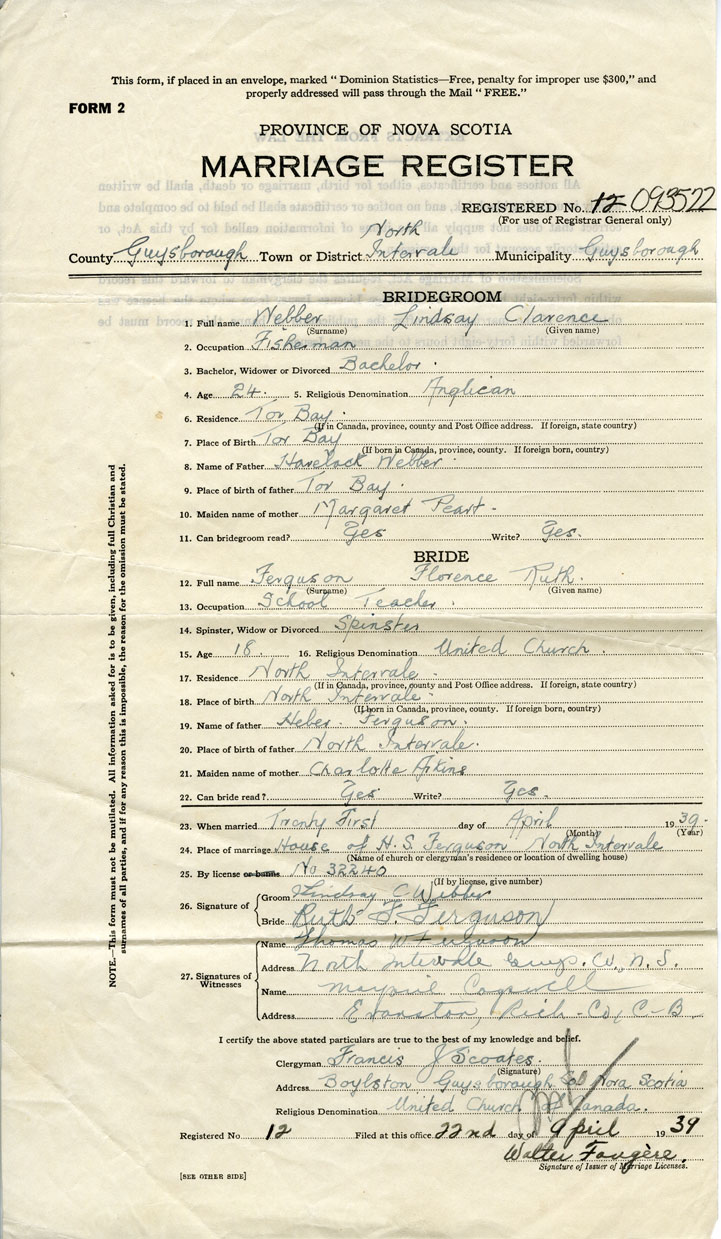 This form, if placed in an envelope, marked " Dominion Statistics—Free, penalty for improper use $300," and
properly addressed will pass through the Mail " FREE."
FORM 2
PROVINCE OF NOVA SCOTIA
MARRIAGE REGISTER
REGISTERED No. 12 093522
(For use of Registrar General only)
County Guysborough Town or District North Intervale Municipality Guysborough
BRIDEGROOM
1. Full name Webber Lindsay Clarence
(Surname) (Given name)
2. Occupation Fisherman
3. Bachelor, Widower or Divorced Bachelor.
4. Age 24. 5. Religious Denomination Anglican
6. Residence Tor Bay.
(If in Canada, province, county and Post Office address. If foreign, state country)
7. Place of Birth Tor Bay
(If born in Canada, province, county. If foreign born, country)
8. Name of Father Havelock Webber.
9. Place of birth of father Tor Bay.
10. Maiden name of mother Margaret Peart.
11. Can bridegroom read? Yes Write? Yes.
BRIDE
12. Full name Ferguson Florence Ruth.
(Surname) (Given name)
13. Occupation School Teacher.
14. Spinster, Widow or Divorced Spinster
15. Age 18. 16. Religious Denomination United Church.
17. Residence North Intervale.
(If in Canada, province, county and Post Office address. If foreign, state country)
18. Place of birth North Intervale.
(If born in Canada, province, county. If foreign born, country)
19. Name of father Heber Ferguson.
20. Place of birth of father North Intervale.
21. Maiden name of mother Charlotte Atkins
22. Can bride read? Yes Write? Yes.
23. When married Twenty First day of April 1939.
(Month) (Year)
24. Place of marriage House of H. S. Ferguson North Intervale
(Name of church or clergyman's residence or location of dwelling house)
25. By license or banns No 32240
(If by license, give number)
26. Signature of
Groom Lindsay C. Webber
Bride Ruth F Ferguson
27. Signatures of Witnesses
Name Thomas W Ferguson
Address North Intervale Guys. Co., N. S.
Name
Address Evanston, Rich-Co, C-B
I certify the above stated particulars are true to the best of my knowledge and belief.
Clergyman Francis J Scoates.
(Signature)
Address Boylston Guysborough Co Nova Scotia
Religious Denomination United Church of Canada.
Registered No. 12 Filed at this office 22nd day of April 1939
Walter Fougère,
Signature of Issuer of Marriage Licenses.
[SEE OTHER SIDE]
NOTE.—This form must not be mutilated. All information asked for is to be given, including full Christian and
surnames of all parties, and if for any reason this is impossible, the reason for the omission must be stated.